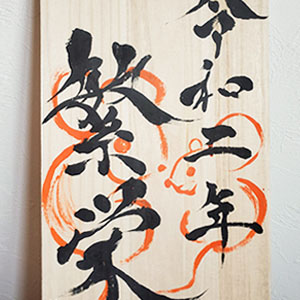 令和二年
繁栄